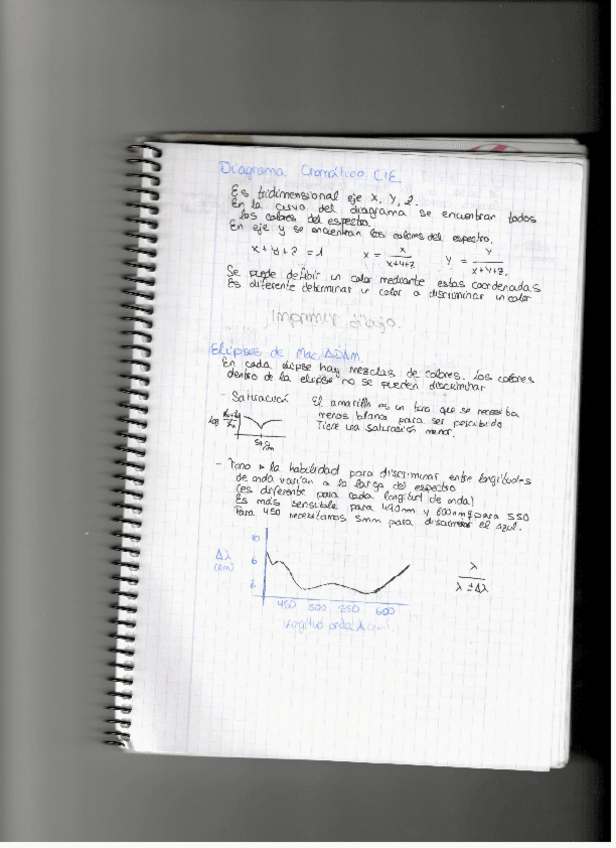 Diagrama Cromático CIE
Es tridimensional eje X, Y, Z.
En la curva del diagrama se encuentran todos
los colores del espectro.
En eje y se encuentran los colores del espectro.
x+y+z=1 x = x/x+y+z y = y/x+y+z.
Se puede definir un color mediante estas coordenadas
Es diferente determinar un color a discriminar un color
Imprimir dibujo.
Elipses de Mac ADAM.
En cada elipse hay mezclas de colores. Los colores
dentro de la elipse no se pueden discriminar
- Saturación El amarillo es un tono que se necesita
menos blanco para ser percibido
Tiene una saturación menor.
log
- Tono → la habilidad para discriminar entre longitudes
de onda varían a lo largo del espectro
(es diferente para cada longitud de onda)
Es más sensible para 490nm y 600nm para 550
Para 450 necesitamos 5nm para discriminar el azul.
Δλ
(nm)
10
6
2
450 500 550 600
Longitud onda λ (nm)
λ
λ ± Δλ